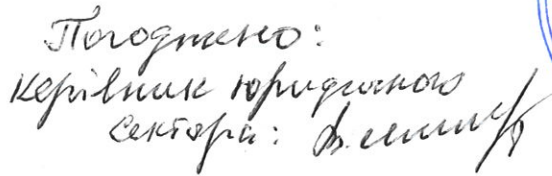 Погоджено:
Керівник юридичного
сектора: